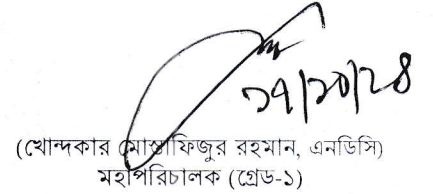 ১৭/১০/২৪
(খোন্দকার মোস্তাফিজুর রহমান, এনডিসি)
মহাপরিচালক (গ্রেড-১)